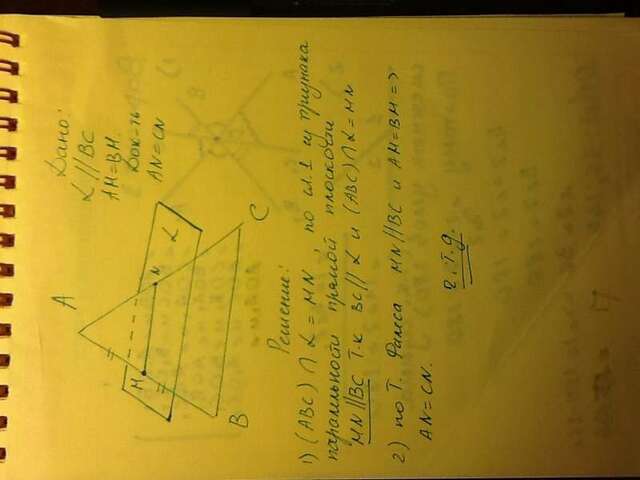 Дано:
α // BC
AM=BM.
Док-ть
AN=CN
A
M
N
α
B
C
Решение:
1) (ABC) ∩ α = MN по сл. 1 из признака
паралльности прямой плоскости
MN//BC т.к BC//α и (ABC)∩α=MN
2) по т. Фалеса MN//BC и AM=BM=>
AN=CN.
ч.т.д.